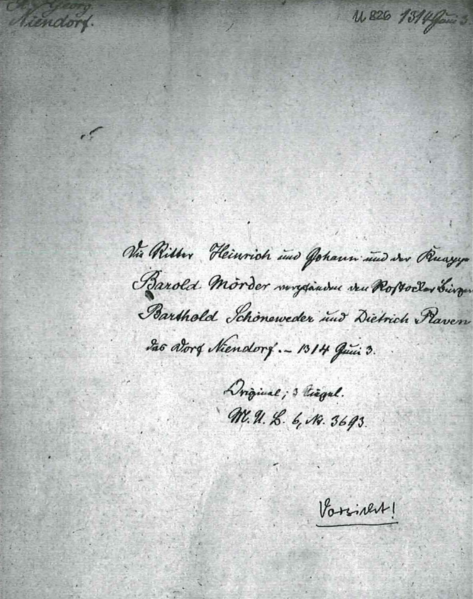 St. Georg.
Niendorf.
U 826 1314 Juni 3
Die Ritter Heinrich und Johann und der Knapp
Barold Mörder verpfänden den Rostocker Bürge
Barthold Schöneweder und Dietrich Raven
das Dorf Niendorf. – 1314 Juni 3.
Original; 3 Siegel.
M. U. B. 6, N. 3693.
Vorsicht!